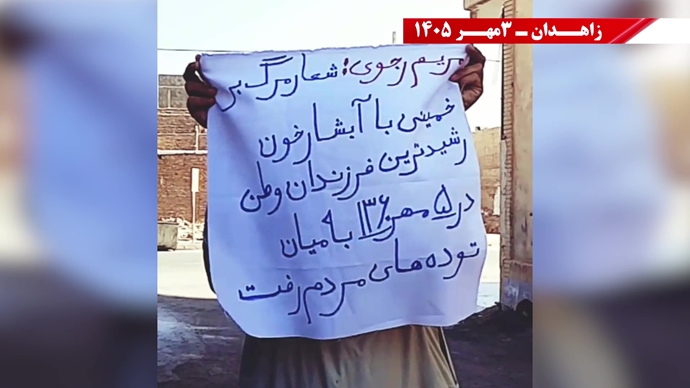 زاهدان ـ ۳مهر ۱۴۰۵
مریم رجوی: شعار مرگ بر
خمینی با آبشار خون
رشیدترین فرزندان وطن
در ۵ مهر ۱۳۶۰ به میان
توده های مردم رفت